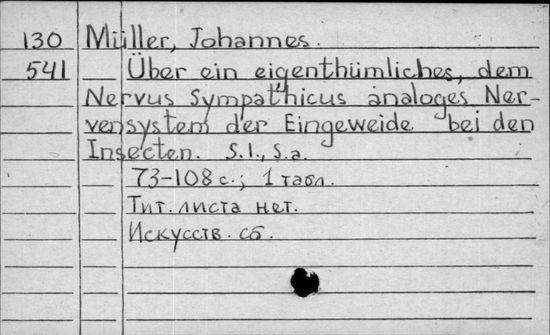 130 Müller, Johannes.
541 Über ein eigenthümliches, dem
Nervus Sympathicus analoges Ner-
vensystem der Eingeweide bei den
Insecten. S.l., S.a.
73-108 с.; 1 табл.
Тит. листа нет.
Искусств. сб.